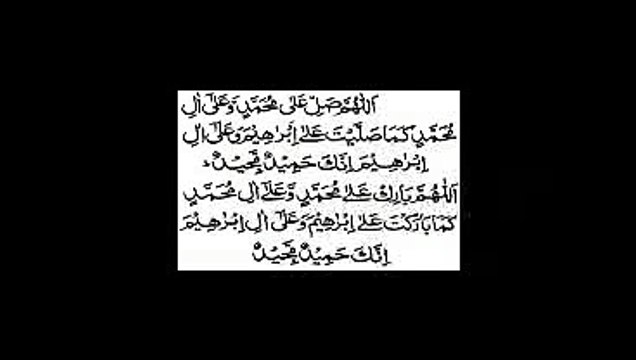 اَللّٰهُمَّ صَلِّ عَلٰى مُحَمَّدٍ وَّعَلٰٓى اٰلِ
مُحَمَّدٍ كَمَا صَلَّيْتَ عَلٰٓى اِبْرٰهِيْمَ وَعَلٰٓى اٰلِ
اِبْرٰهِيْمَ اِنَّكَ حَمِيْدٌ مَّجِيْدٌ ۰
اَللّٰهُمَّ بَارِكْ عَلٰى مُحَمَّدٍ وَّعَلٰٓى اٰلِ مُحَمَّدٍ
كَمَا بَارَكْتَ عَلٰٓى اِبْرٰهِيْمَ وَعَلٰٓى اٰلِ اِبْرٰهِيْمَ
اِنَّكَ حَمِيْدٌ مَّجِيْدٌ